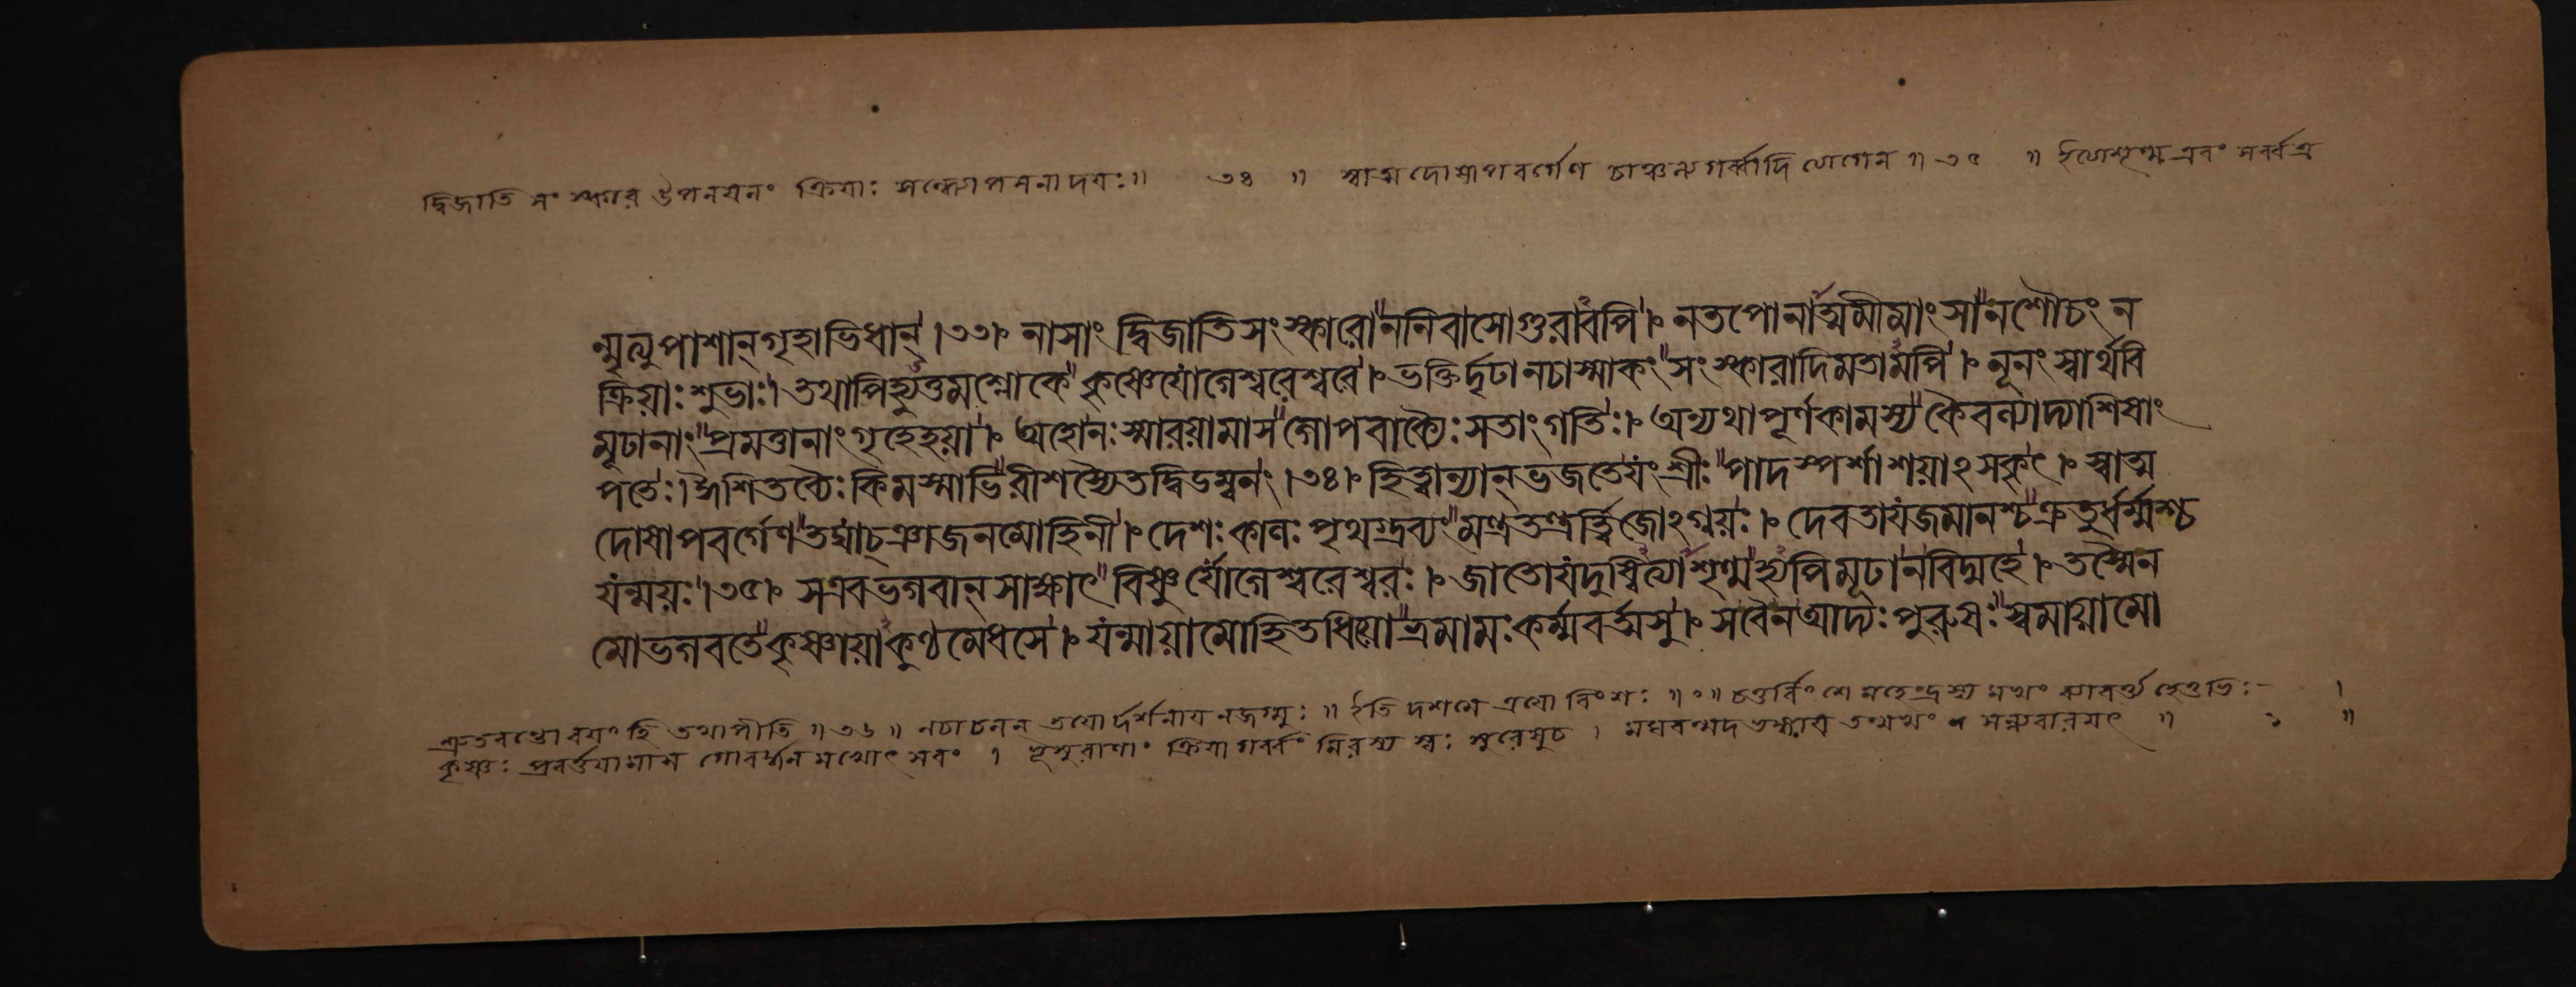 দ্বিজাতি সংস্কার উপনয়নং ক্রিয়াঃ সন্ধ্যোপাসনাদয়ঃ॥ ৩৪ ॥ স্বাত্মদোষাপবর্গেণ চাঞ্চল্যগর্ব্বাদি ত্যাগেন॥ ৩৫ ॥
ন্মৃত্যুপাশান্গৃহাভিধান্।৩৩। নাসাং দ্বিজাতিসংস্কারো ননিবাসোগুরাবপি। নতপোনাত্মমীমাংসা নশৌচং ন
ক্রিয়াঃশুভাঃ। তথাপিহ্যুত্তমশ্লোকে কৃষ্ণেযোগেশ্বরেশ্বরে। ভক্তির্দৃঢানচাস্মাকং সংস্কারাদিমতামপি। নূনং স্বার্থবি
মূঢানাং প্রমত্তানাংগৃহেহয়া। অহোনঃস্মারয়ামাস গোপবাক্যৈঃসতাংগতিঃ। অন্যথাপূর্ণকামস্য কৈবল্যাদ্যাশিষাং
পতেঃ। ঈশিতব্যৈঃকিমস্মাভিরীশস্যৈতদ্বিডম্বনং।৩৪। হিত্বান্যান্ভজতেযংশ্রীঃ পাদস্পর্শাশয়াঽসকৃৎ। স্বাত্ম
দোষাপবর্গেণ তদ্যাচ্ঞাজনমোহিনী। দেশঃকালঃপৃথগ্দ্রব্যং মন্ত্রতন্ত্রর্ত্ত্বিজোঽগ্নয়ঃ। দেবতাযজমানশ্চ ক্রতুর্ধর্ম্মশ্চ
যন্ময়ঃ।৩৫। সএবভগবান্সাক্ষাৎ বিষ্ণুর্যোগেশ্বরেশ্বরঃ। জাতোযদুস্বিত্যাশৃণ্মহ্যপিমূঢানবিদ্মহে। তস্মৈন
মোভগবতেকৃষ্ণায়াকুণ্ঠমেধসে। যন্মায়ামোহিতধিয়োভ্রমামঃকর্ম্মবর্ত্মসু। সবৈনআদ্যঃপুরুষঃস্বমায়ামো
তথাপীতি॥৩৬॥ নচাচলন তয়োর্দর্শনায় নজগ্মুঃ॥ ইতি দশমে ত্রয়োবিংশঃ॥০॥ চতুর্বিংশে মহেন্দ্রস্য মখং ব্যাবর্ত্ত্য হেতুভিঃ ।
কৃষ্ণঃ প্রবর্ত্তয়ামাস গোবর্দ্ধন মখোৎসবং । ভূসুরাণাং ক্রিয়াগর্ব্বং নিরস্য স্বঃ সুরেষুচ ।